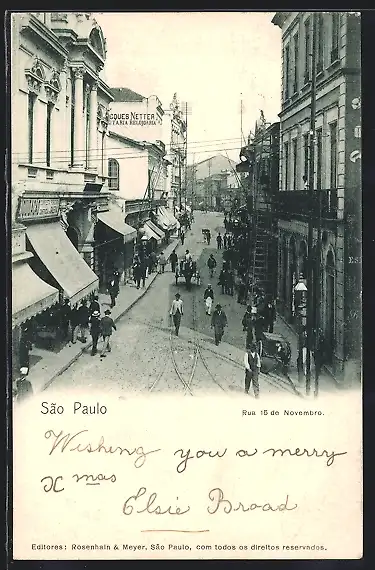 JACQUES NETTER
São Paulo
Rua 15 de Novembro.
Wishing you a merry
Xmas
Elsie Broad
Editores: Rosenhain & Meyer, São Paulo, com todos os direitos reservados.